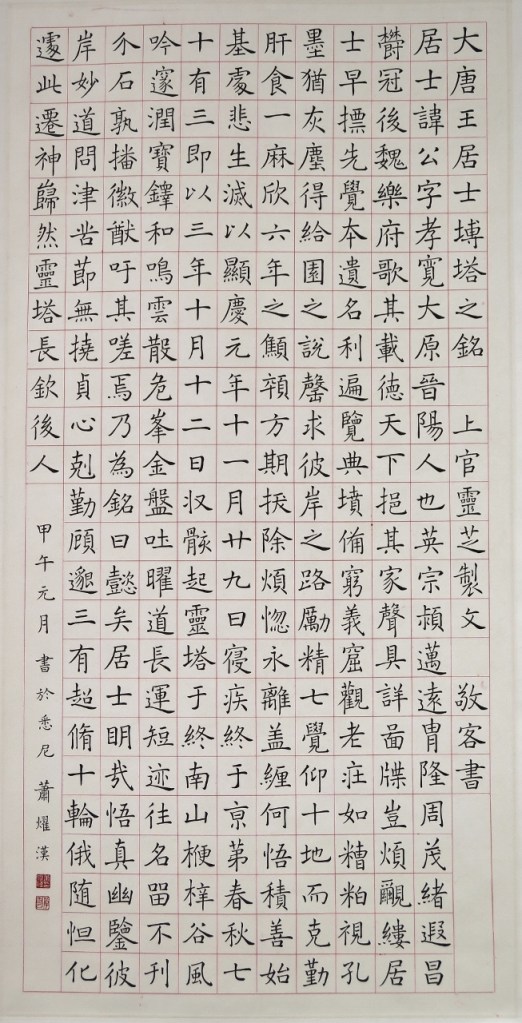 大唐王居士塼塔之銘 上官靈芝製文 敬客書
居士諱公字孝寬大原晉陽人也英宗熲邁遠冑隆周茂緒遐昌
欝冠後魏樂府歌其載德天下挹其家聲具詳啚牒豈煩覼縷居
士早摽先覺本遺名利遍覽典墳俻窮義窟觀老莊如糟粕視孔
墨猶灰塵得給園之說罄求彼岸之路勵精七覺仰十地而克勤
肝食一麻欣六年之顦顇方期拔除煩惚永離盖纏何悟積善始
基處悲生滅以顯慶元年十一月廿九日寑疾終于京第春秋七
十有三即以三年十月十二日收骸起靈塔于終南山梗梓谷風
吟邃潤寶鐸和鳴雲散危峯金盤吐曜道長運短迹往名留不刊
介石孰播徽猷吁其嗟焉乃為銘曰懿矣居士明哉悟真幽鑒彼
岸妙道問津苦節無撓貞心剋勤顧邈三有超脩十輪俄随怛化
遽此遷神巋然靈塔長欽後人
甲午元月書於悉尼 蕭燿漢